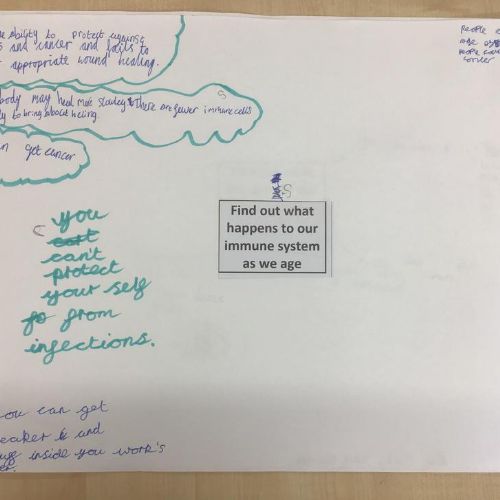 ability to protect against
and cancer and fails to
appropriate wound healing.
body may heal more slowly & there are fewer immune cells
to bring about healing.
get cancer
People
age
people
cancer
S
S
Find out what
happens to our
immune system
as we age
C
you
can't
protect
your self
from
infections.
you can get
and
inside you work's